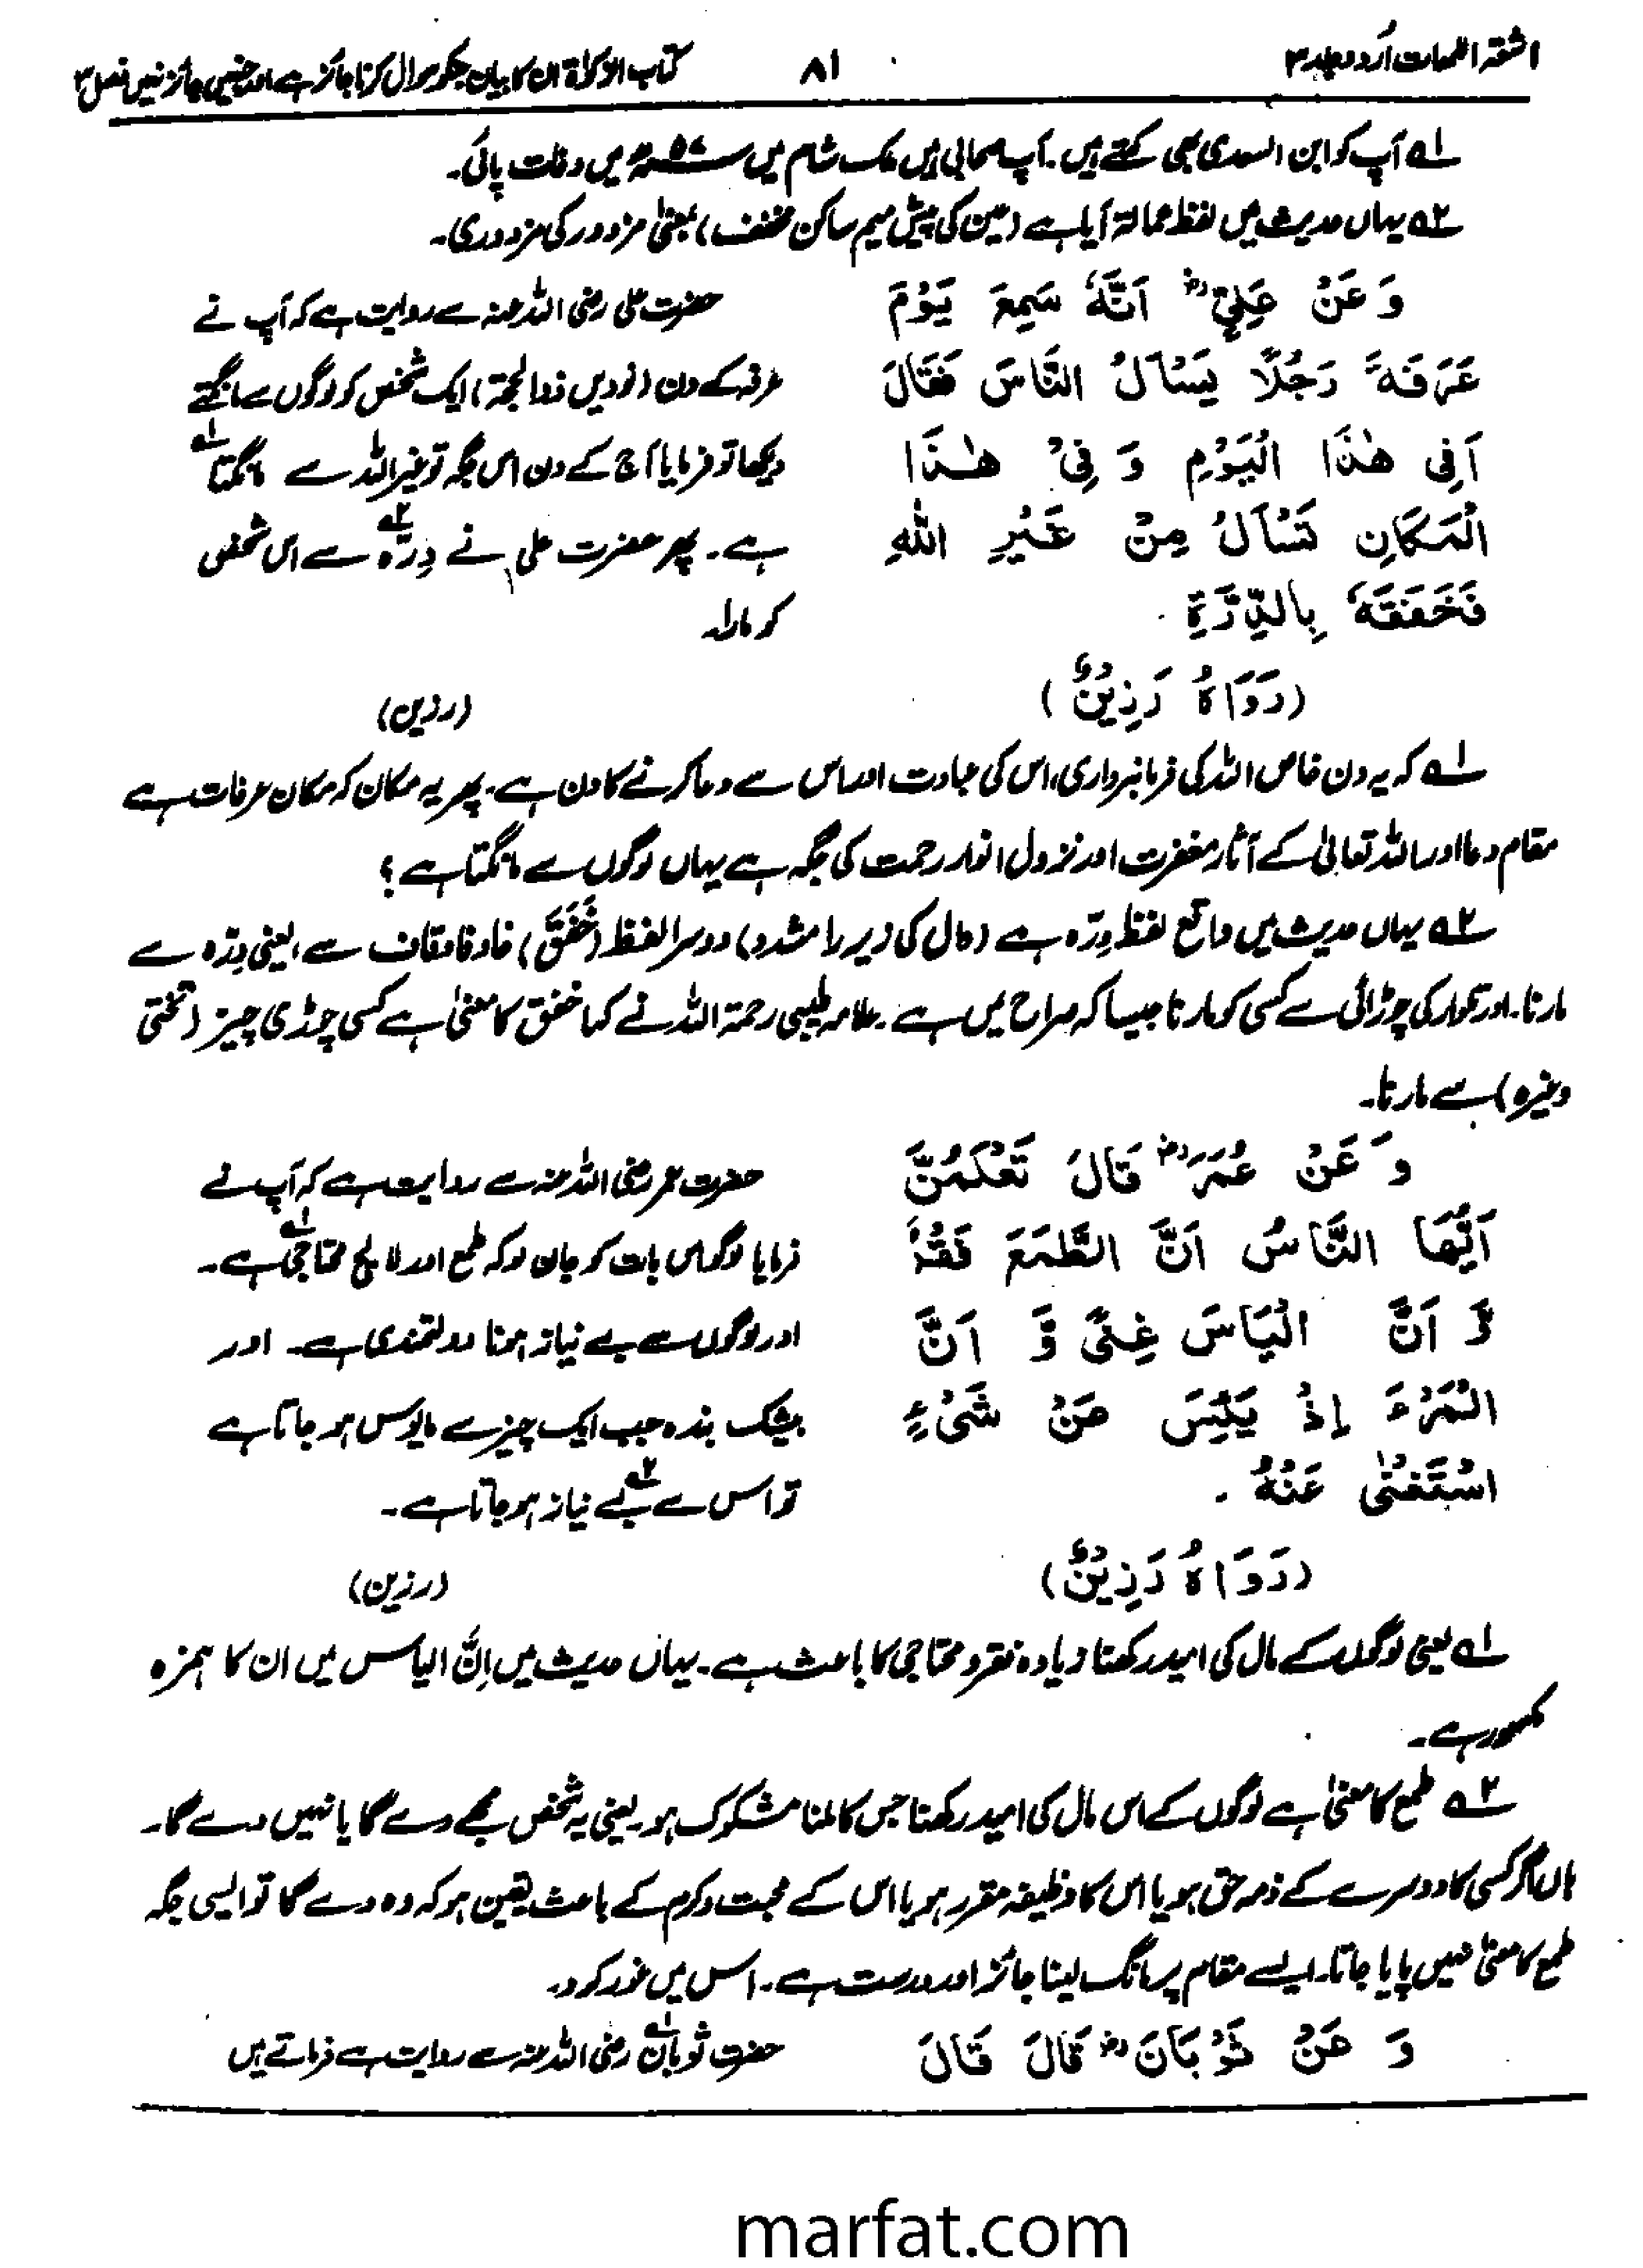 اشعۃ اللمعات اردو جلد ۳
۸۱
کتاب الزکوٰۃ ان کا بیان جنکو سوال کرنا جائز ہے اور جنہیں جائز نہیں فصل ۳
۱ے آپ کو ابن السعدی بھی کہتے ہیں۔ آپ صحابی ہیں ملک شام میں ۵۷ھ میں وفات پائی۔
۲ے یہاں حدیث میں لفظ عمالۃ آیا ہے (عین کی پیش میم ساکن مخفف) بمعنیٰ مزدور کی مزدوری۔
وَ عَنْ عَلِیٍّ رض اَنَّہٗ سَمِعَ یَوْمَ
عَرَفَۃَ رَجُلًا یَسْاَلُ النَّاسَ فَقَالَ
اَفِی ھٰذَا الْیَوْمِ وَ فِیْ ھٰذَا
الْمَکَانِ تَسْاَلُ مِنْ غَیْرِ اللّٰہِ
فَخَفَقَہٗ بِالدِّرَّۃِ۔
(رَوَاہُ رَزِیْنٌ)
حضرت علی رضی اللہ عنہ سے روایت ہے کہ آپ نے
عرفہ کے دن (نویں ذوالحجۃ) ایک شخص کو لوگوں سے مانگتے
دیکھا تو فرمایا آج کے دن اس جگہ تو غیر اللہ سے مانگتا ۱ے
ہے۔ پھر حضرت علی نے دِرّہ ۲ے سے اس شخص
کو مارا۔
(رزین)
۱ے کہ یہ دن خاص اللہ کی فرمانبرداری، اس کی عبادت اور اس سے دعا کرنے کا دن ہے۔ پھر یہ مکان کہ مکان عرفات ہے
مقام دعا اور اللہ تعالیٰ کے آثار مغفرت اور نزول انوار رحمت کی جگہ ہے یہاں لوگوں سے مانگتا ہے؟
۲ے یہاں حدیث میں واقع لفظ دِرّہ ہے (دال کی زیر را مشدد) دوسرا لفظ (خَفَقَ) خا و فا و قاف سے، یعنی دِرّہ سے
مارنا۔ اور تلوار کی چوڑائی سے کسی کو مارنا جیسا کہ صراح میں ہے۔ علامہ طیبی رحمۃ اللہ نے کہا خفق کا معنیٰ ہے کسی چوڑی چیز (تختی
وغیرہ) سے مارنا۔
وَ عَنْ عُمَرَ رض قَالَ تَعْلَمُنَّ
اَیُّھَا النَّاسُ اَنَّ الطَّمَعَ فَقْرٌ
وَّ اَنَّ الْیَاسَ غِنًی وَّ اَنَّ
الْمَرْءَ اِذْ یَئِسَ عَنْ شَیْءٍ
اسْتَغْنٰی عَنْہُ۔
(رَوَاہُ رَزِیْنٌ)
حضرت عمر رضی اللہ عنہ سے روایت ہے کہ آپ نے
فرمایا لوگو اس بات کو جان لو کہ طمع اور لالچ محتاجی ۱ے ہے۔
اور لوگوں سے بے نیاز ہونا دولتمندی ہے۔ اور
بیشک بندہ جب ایک چیز سے مایوس ہو جاتا ہے
تو اس سے ۲ے بے نیاز ہو جاتا ہے۔
(رزین)
۱ے یعنی لوگوں کے مال کی امید رکھنا زیادہ فقر و محتاجی کا باعث ہے۔ یہاں حدیث میں اِنَّ الیاس میں ان کا ہمزہ
مکسور ہے۔
۲ے طمع کا معنیٰ ہے لوگوں کے اس مال کی امید رکھنا جس کا ملنا مشکوک ہو۔ یعنی یہ شخص مجھے دے گا یا نہیں دے گا۔
ہاں اگر کسی کا دوسرے کے ذمہ حق ہو یا اس کا وظیفہ مقرر ہو یا اس کے محبت و کرم کے باعث یقین ہو کہ وہ دے گا تو ایسی جگہ
طمع کا معنیٰ نہیں پایا جاتا۔ ایسے مقام پر مانگ لینا جائز اور درست ہے۔ اس میں غور کرو۔
وَ عَنْ ثَوْبَانَ رض قَالَ قَالَ
حضرت ثوبان ۱ے رضی اللہ عنہ سے روایت ہے فرماتے ہیں
marfat.com